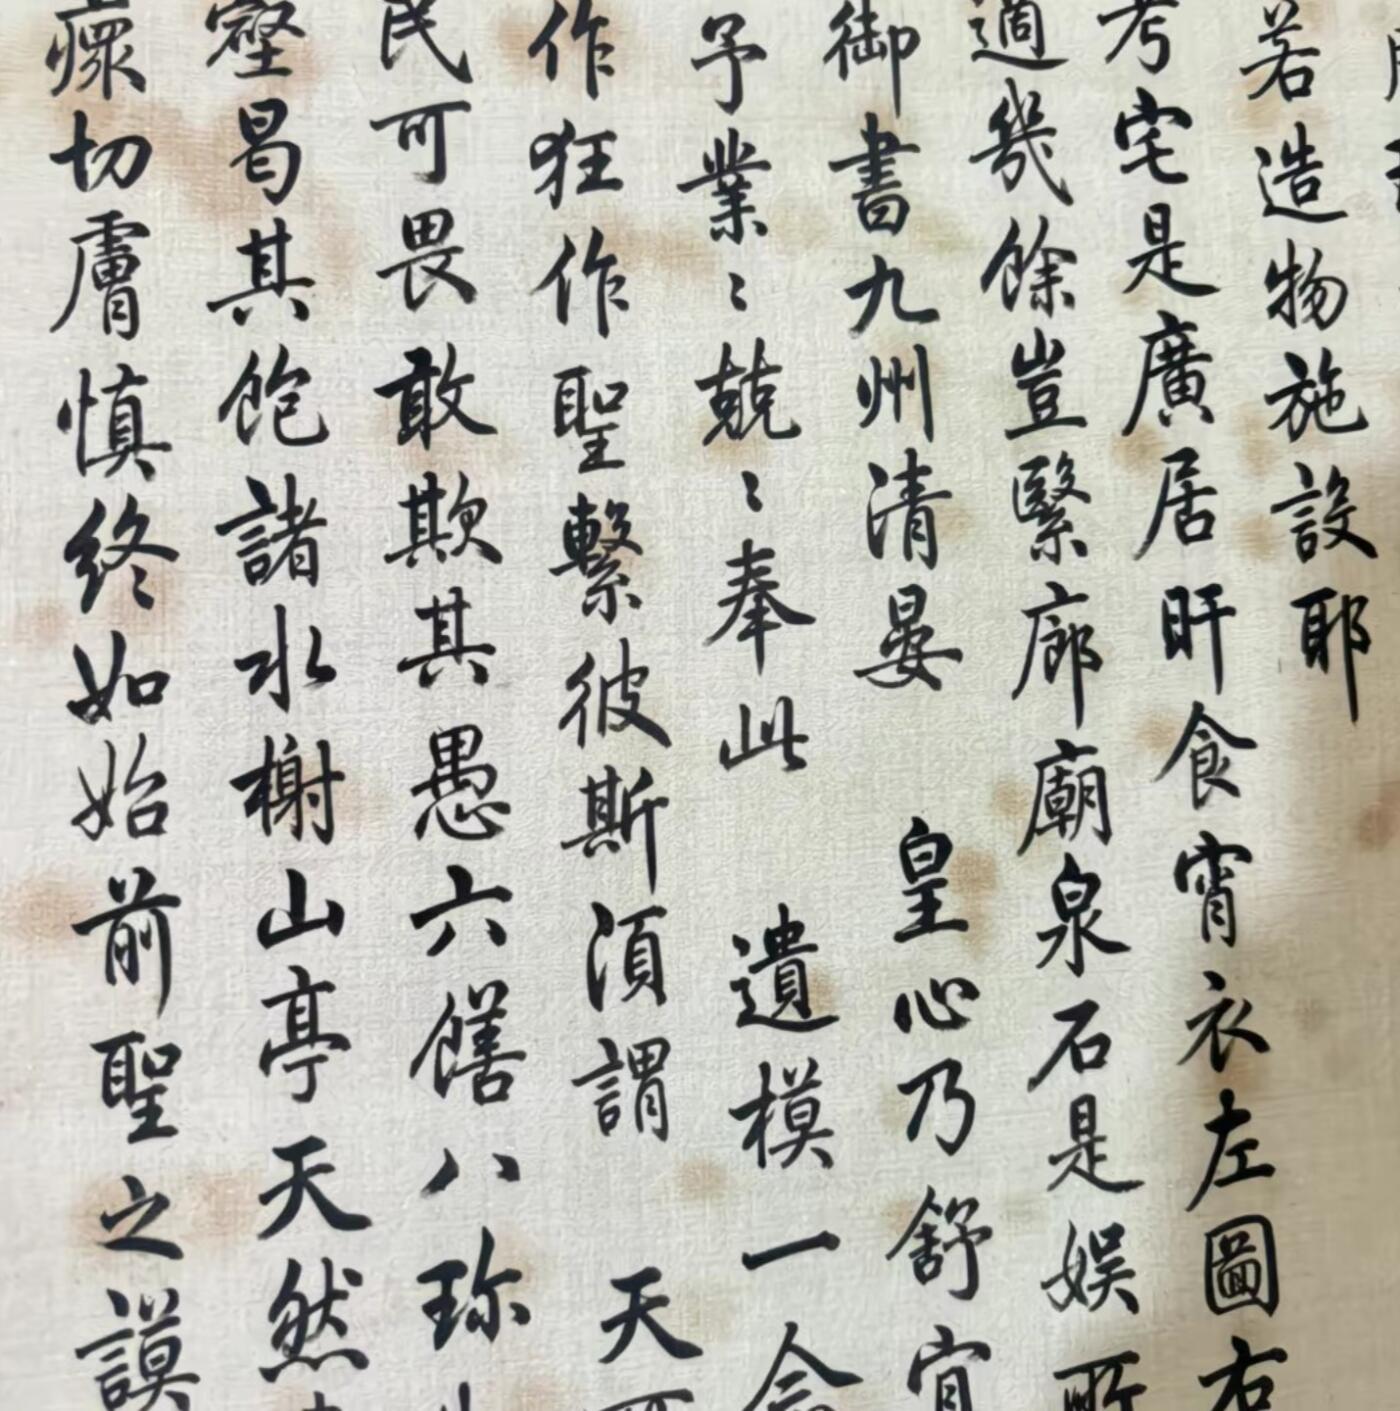 若造物施設耶
考宅是廣居旰食宵衣左圖右
適幾餘豈緊廊廟泉石是娛所
御書九州清晏 皇心乃舒宜
予業〻兢〻奉此 遺模一念
作狂作聖繫彼斯須謂 天
民可畏敢欺其愚六饍八珍
壑曷其飽諸水榭山亭天然
瘝切膚慎終如始前聖之謨